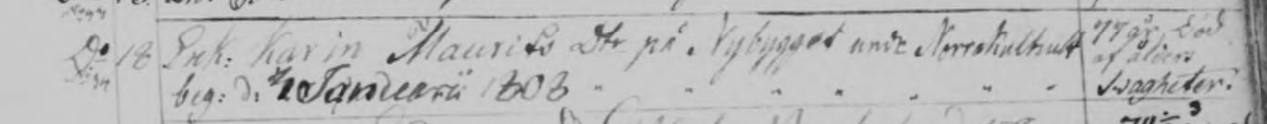 Do 18 Enk: Karin Maurits Dtr på Nybygget unde Norra Kulthult 77 år. Död
af ålders
beg: d: Januarii 1808 " " " " " " " swagheter.